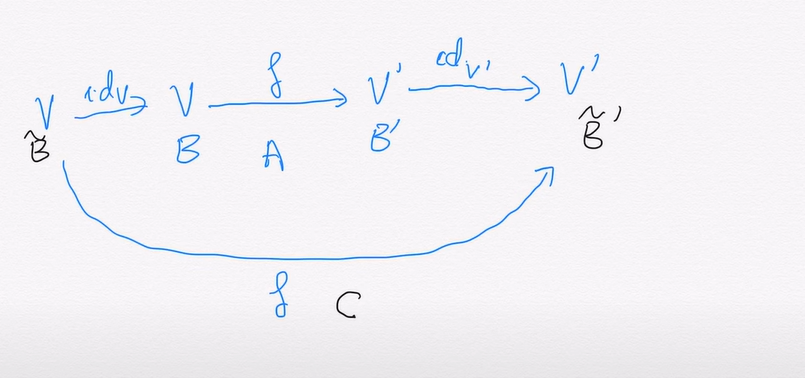 V id_V V f V' id_V' V'
B̃ B A B' B̃'
f C